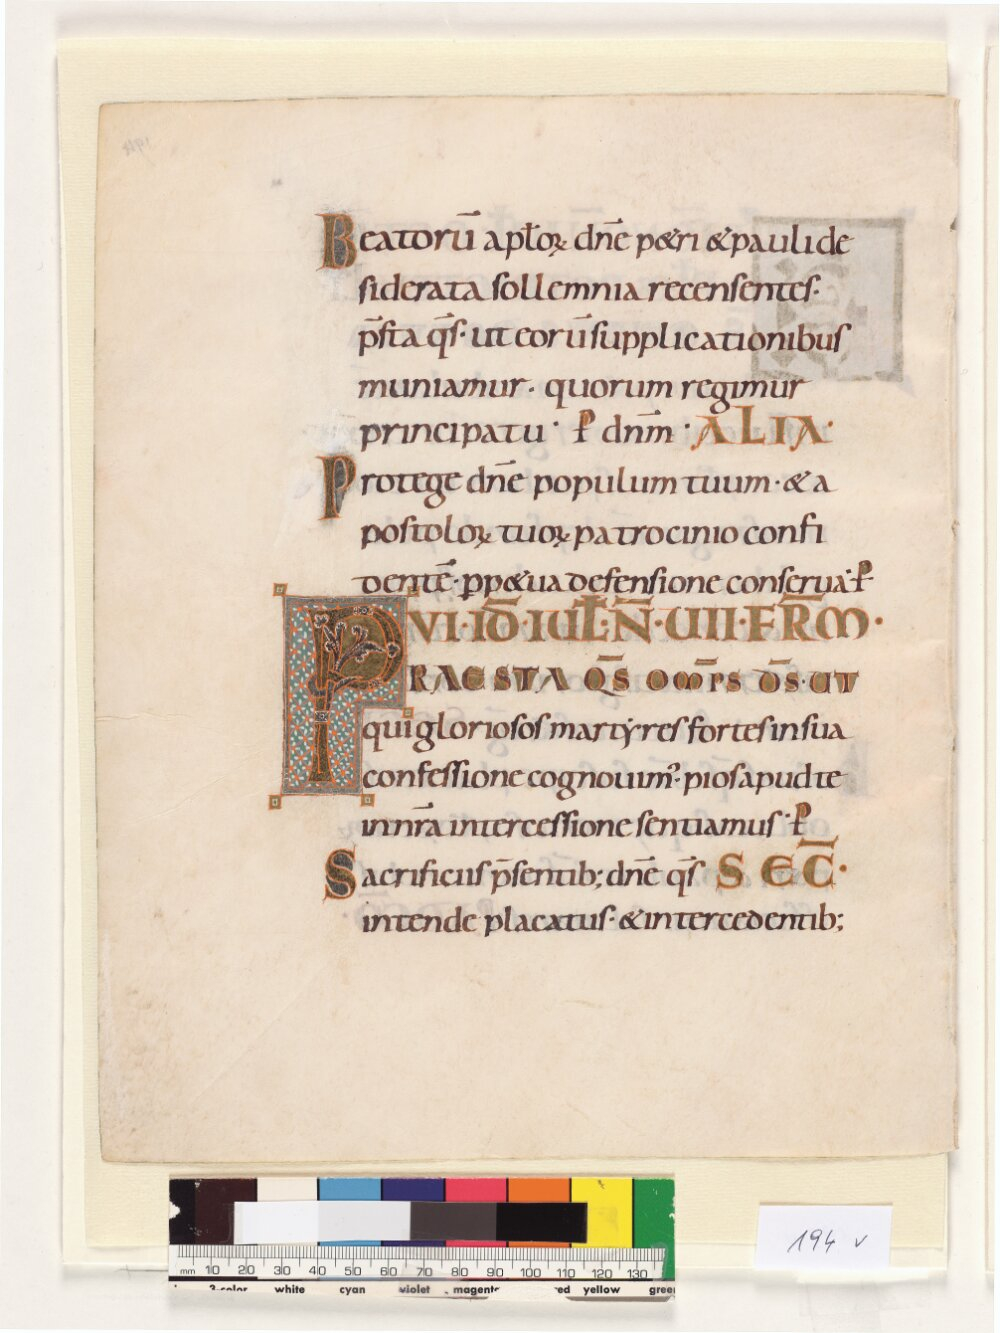 Beatorū aptōꝝ dn̄e p&ri &pauli de
siderata sollemnia recensentes·
p̄sta q̄s· ut eorū supplicationibus
muniamur· quorum regimur
principatu· ꝑ dn̄m· ALIA·
Protege dn̄e populum tuum· & a
postoloꝝ tuoꝝ patrocinio confi
dentē· ꝑp&ua defensione conserua· ꝑ
VI·ID̄·IUŁ·N̄·UII·FR̄M·
PRAESTA Q̄S OM̄PS D̄S·UT
qui gloriosos martyres fortes in sua
confessione cognouim᾽· pios apud te
in nr̄a intercessione sentiamus· ꝑ
Sacrificiis p̄sentib; dn̄e q̄s SEC̄·
intende placatus· & intercedentib;
mm 10 20 30 40 50 60 70 80 90 100 110 120 130
3-color white cyan violet magenta red yellow green
194 v